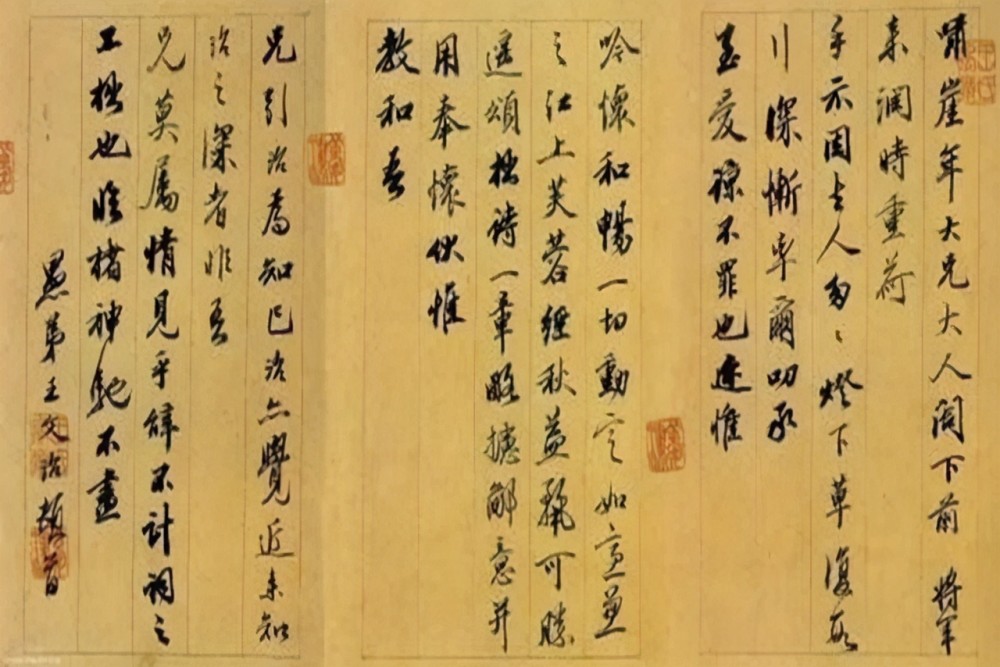 啸崖年大兄大人阁下前 将军
来润时重荷
手示因去人匆匆灯下草复数
行深惭率尔叨承
至爱谅不罪也迩惟
吟怀和畅一切动定如意
之江上芙蓉经秋益丽可胜
遥颂拙诗一章略摅鄙意并
用奉怀伏惟
教和吾
兄引治为知己治亦觉近来知
治之深者惟吾
兄莫属情见乎辞不计词之
工拙也临楮神驰不尽
愚弟王文治顿首